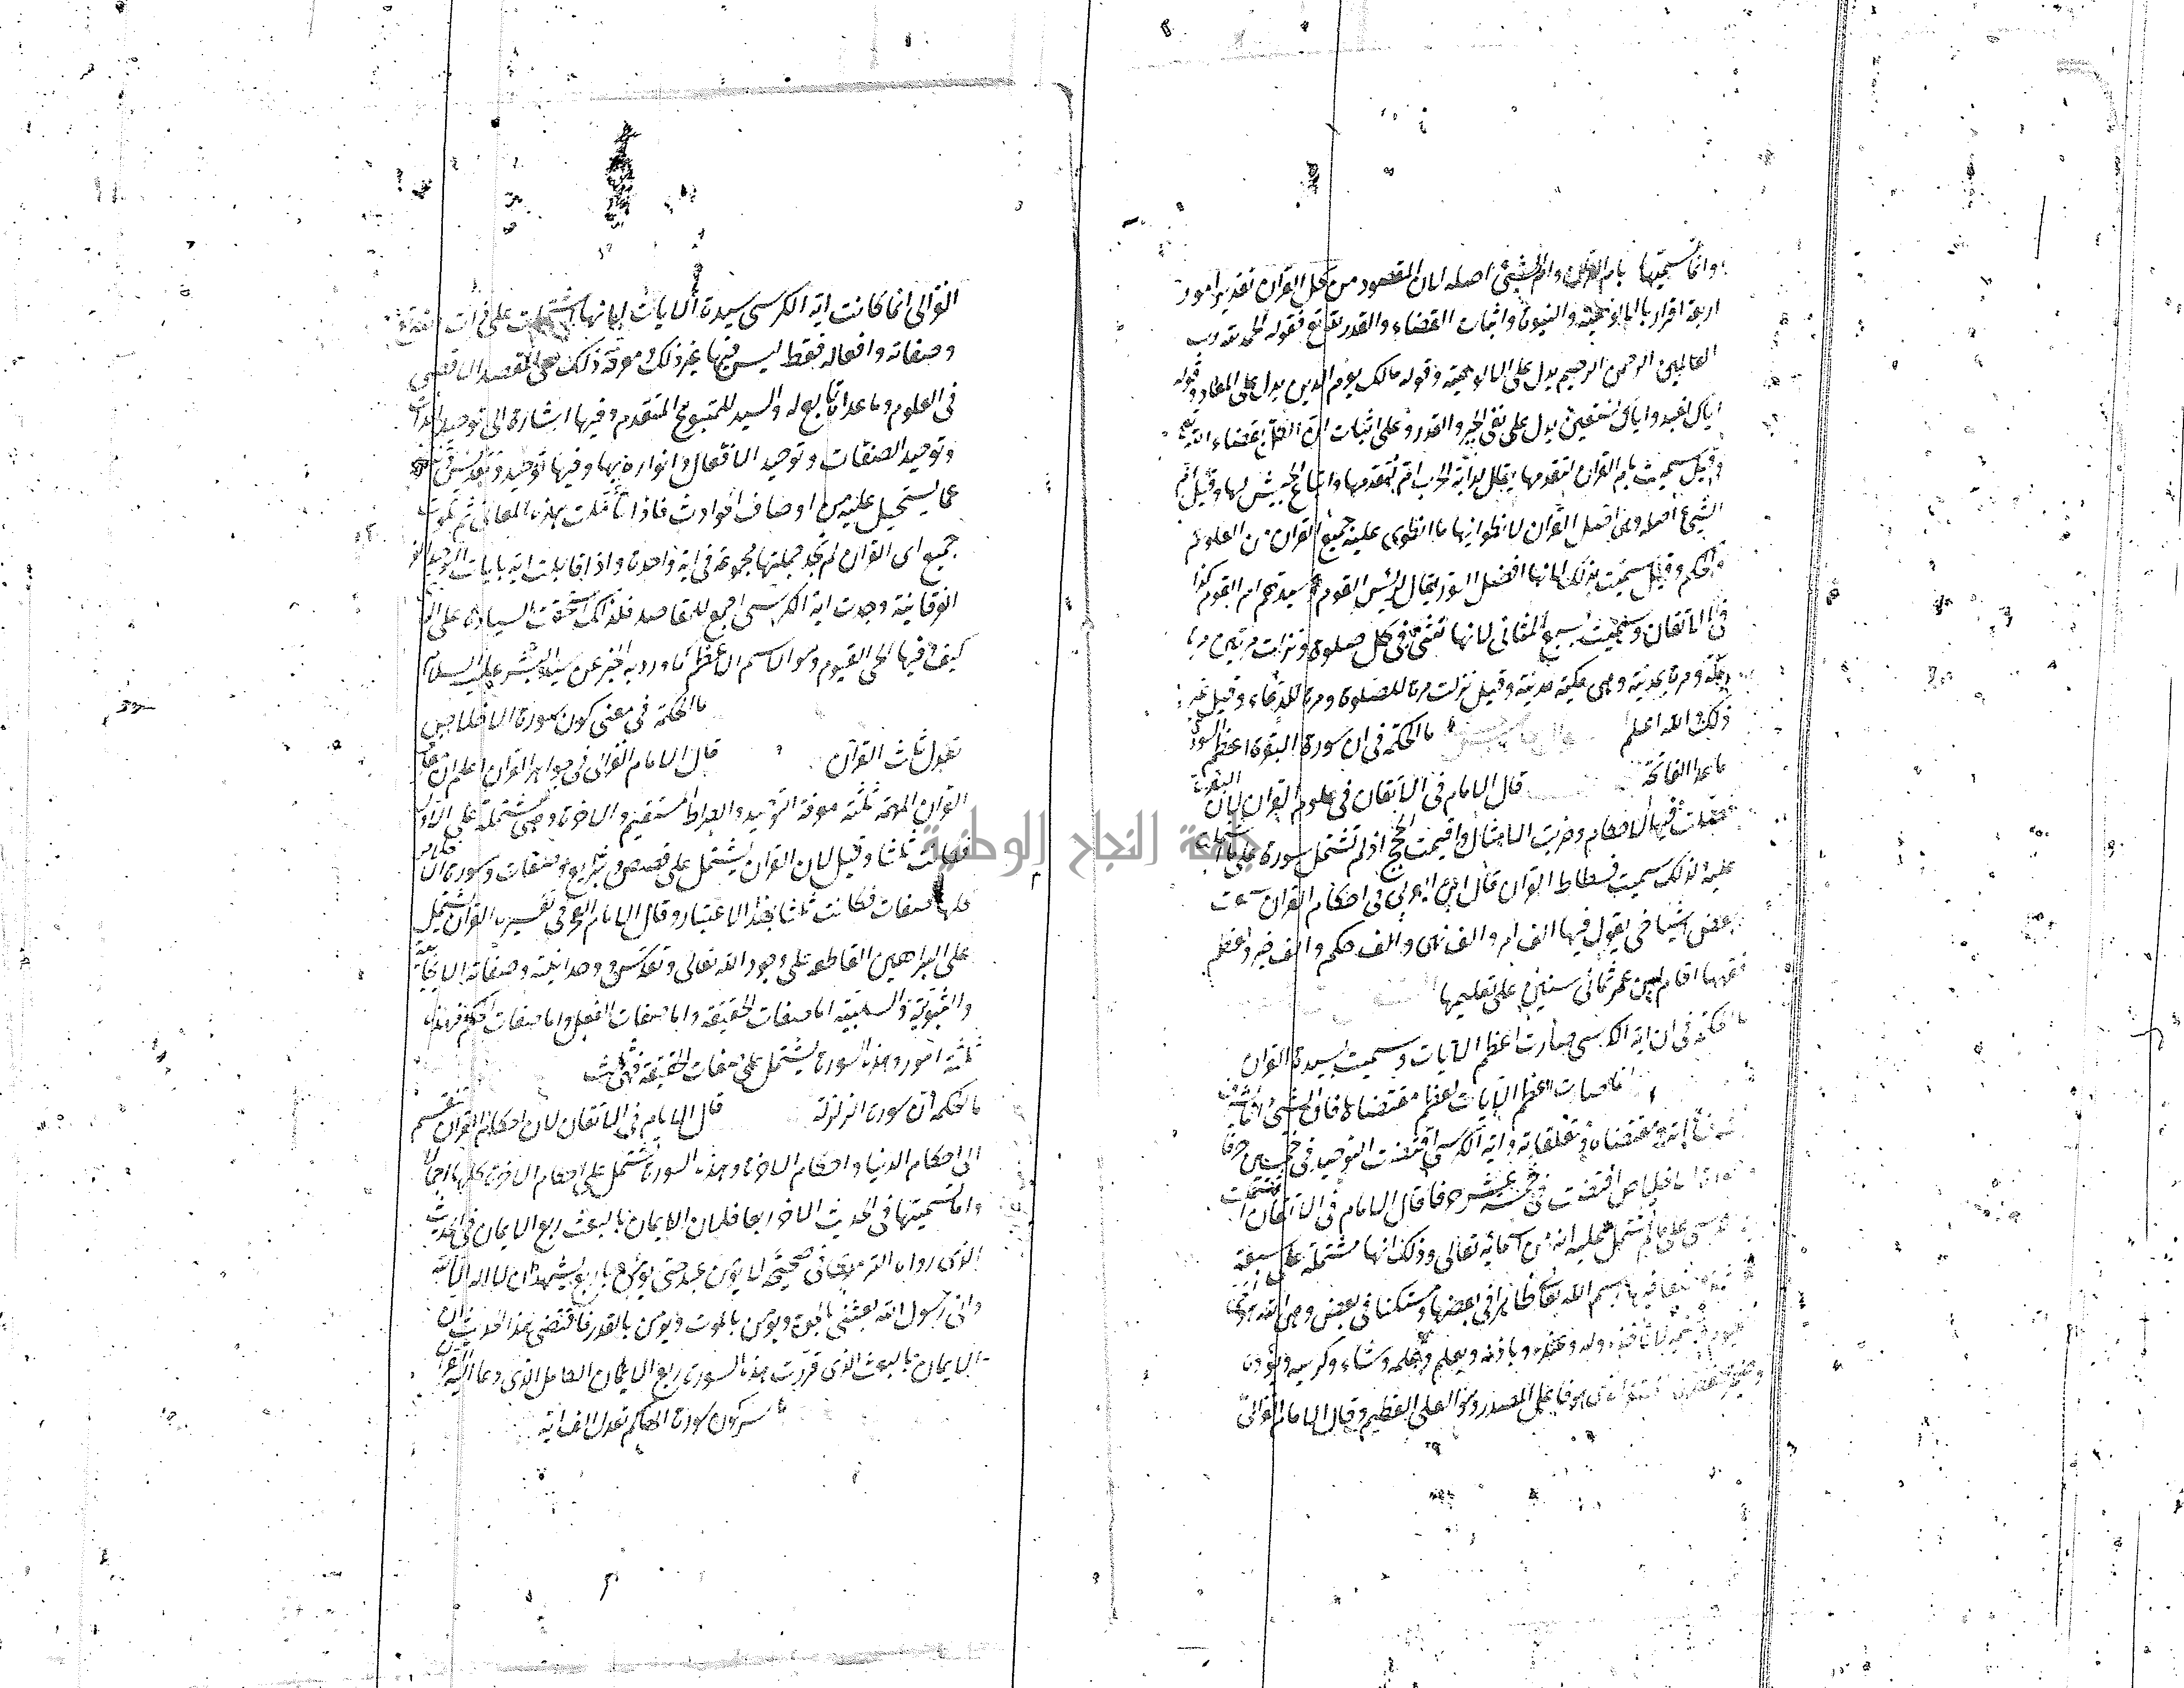 وانما سميتها بام القران وام الشيئ اصله لان المقصود من كل القران تقدير امور
اربعة اقرار بالالوهية والنبوة واثبات القضاء والقدر لله تع فقوله الحمد لله رب
العالمين الرحمن الرحيم يدل على الالوهية وقوله مالك يوم الدين يدل على المعاد وقوله
اياك نعبد واياك نستعين يدل على نفى الجبر والقدر وعلى اثبات ان الكل بقضاء الله تع
وقيل سميت بام القران لتقدمها يقال لراية الحرب ام لتقدمها واتباع الجيش لها وقيل ام
الشيئ اصله وهى اصل القران لانطوائها ما انطوى عليه جميع القران من العلوم
والحكم وقيل سميت بذلك لانها افضل السور يقال لرئيس القوم وسيدهم ام القوم كذا
فى الاتقان وسميت بسبع المثانى لانها تثنى فى كل صلوة ونزلت مرتين مرة
بمكة ومرة بمدينة وهى مكية مدنية وقيل نزلت مرة للصلوة ومرة للدعاء وقيل غير
ذلك والله اعلم ما الحكمة فى ان سورة البقرة اعظم السور
ما عدا الفاتحة قال الامام فى الاتقان فى علوم القران لان البقرة
فصلت فيها الاحكام وضربت الامثال واقيمت الحجج اذ لم تشتمل سورة على ما اشتملت
عليه ولذلك سميت فسطاط القران قال ابن العربى فى احكام القران سمعت
بعض اشياخى يقول فيها الف امر والف نهى والف حكم والف خبر ولعظم
فقهها اقام ابن عمر ثمانى سنين على تعليمها
ما الحكمة فى ان اية الكرسى صارت اعظم الآيات وسميت بسيدة القران
انما صارت اعظم الآيات لعظم مقتضاها فان الشيئ انما يشرف
بشرف ذاته ومقتضاه وتعلقاته واية الكرسى اقتضت التوحيد فى خمسين حرفا
وسورة الاخلاص اقتضت فى خمسة عشر حرفا قال الامام فى الاتقان اشتملت
اية الكرسى على ما لم يشتمل عليه اية من اسمائه تعالى وذلك انها مشتملة على سبعة
عشر موضعا فيها اسم الله تعالى ظاهرا فى بعضها ومستكنا فى بعض وهى الله هو الحى
القيوم ضمير لا تأخذه وله وعنده وباذنه ويعلم وعلمه وشاء وكرسيه ويؤده
وضمير حفظهما المستتر الذى هو فاعل المصدر وهو العلى العظيم وقال الامام الغزالى
الغزالى انما كانت اية الكرسى سيدة الايات لانها اشتملت على ذات الله تع
وصفاته وافعاله فقط ليس فيها غير ذلك ومعرفة ذلك هى المقصد الاقصى
فى العلوم وما عداه تابع له والسيد للمتبوع المتقدم وفيها اشارة الى توحيد الذات
وتوحيد الصفات وتوحيد الافعال وانواره بها وفيها توحيد وتقديس
عما يستحيل عليه من اوصاف الحوادث فاذا تأملت بهذه المعانى ثم تلوت
جميع اى القران لم تجد جملتها مجموعة فى اية واحدة واذا قابلت اية بايات
الفرقانية وجدت اية الكرسى اجمع للمقاصد فلذلك استحقت السيادة على
كيف وفيها الحى القيوم وهو الاسم الاعظم كما ورد به الخبر عن سيد البشر عليه السلام
ما الحكمة فى معنى كون سورة الاخلاص
تعدل ثلث القرآن قال الامام الغزالى فى جواهر القران اعلم ان
القران المهمة ثلثة معرفة التوحيد والصراط المستقيم والاخرة وهى مشتملة على الاول
فكانت ثلثا وقيل لان القران يشتمل على قصص وشرايع وصفات وسورة الاخلاص
كلها صفات فكانت ثلثا بهذا الاعتبار وقال الامام فى تفسيره القرآن يشتمل
على البراهين القاطعة على وجود الله تعالى وتقدس ووحدانيته وصفاته
والثبوتية والسلبية اما صفات الحقيقة واما صفات الفعل واما صفات الحكم فهذه
ثلثة امور وهذه السورة يشتمل على صفات الحقيقة فهى ثلث
ما الحكمة ان سورة الزلزلة قال الامام فى الاتقان لان احكام القران تنقسم
الى احكام الدنيا واحكام الاخرة وهذه السورة تشتمل على احكام الاخرة كلها اجمالا
واما تسميتها فى الحديث الاخر ربعا فلان الايمان بالبعث ربع الايمان فى الحديث
الذى رواه الترمذى فى صحيحه لا يؤمن عبد حتى يؤمن باربع يشهد ان لا اله الا الله
وانى رسول الله بعثنى بالحق ويؤمن بالموت ويؤمن بالقدر فاقتضى هذا الحديث ان
الايمان بالبعث الذى قررت هذه السورة ربع الايمان الكامل الذى دعا اليه القران
ما سر كون سورة الهاكم تعدل الف اية
جامعة النجاح الوطنية